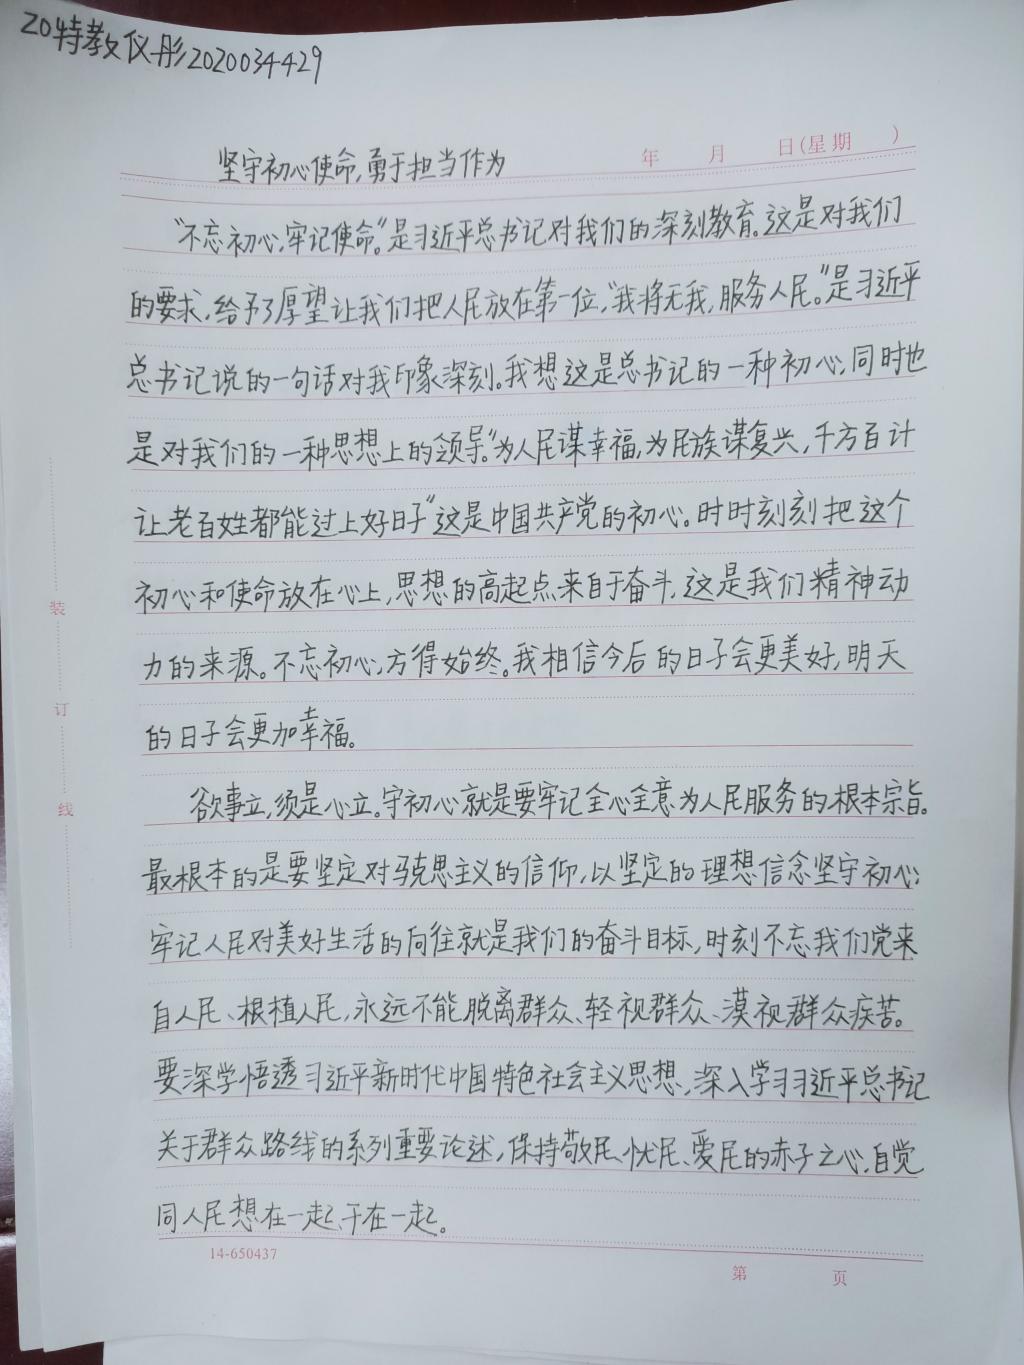 20特教仪彤2020034429
坚守初心使命,勇于担当作为
年 月 日(星期 )
“不忘初心,牢记使命。”是习近平总书记对我们的深刻教育。这是对我们
的要求,给予了厚望让我们把人民放在第一位,“我将无我,服务人民。”是习近平
总书记说的一句话对我印象深刻。我想这是总书记的一种初心,同时也
是对我们的一种思想上的领导。“为人民谋幸福,为民族谋复兴,千方百计
让老百姓都能过上好日子”这是中国共产党的初心。时时刻刻把这个
初心和使命放在心上,思想的高起点来自于奋斗,这是我们精神动
力的来源。不忘初心,方得始终。我相信今后的日子会更美好,明天
的日子会更加幸福。
欲事立,须是心立。守初心就是要牢记全心全意为人民服务的根本宗旨。
最根本的是要坚定对马克思主义的信仰,以坚定的理想信念坚守初心;
牢记人民对美好生活的向往就是我们的奋斗目标,时刻不忘我们党来
自人民、根植人民,永远不能脱离群众、轻视群众、漠视群众疾苦。
要深学悟透习近平新时代中国特色社会主义思想,深入学习习近平总书记
关于群众路线的系列重要论述,保持敬民、忧民、爱民的赤子之心,自觉
同人民想在一起、干在一起。
14-650437
第 页
装
订
线